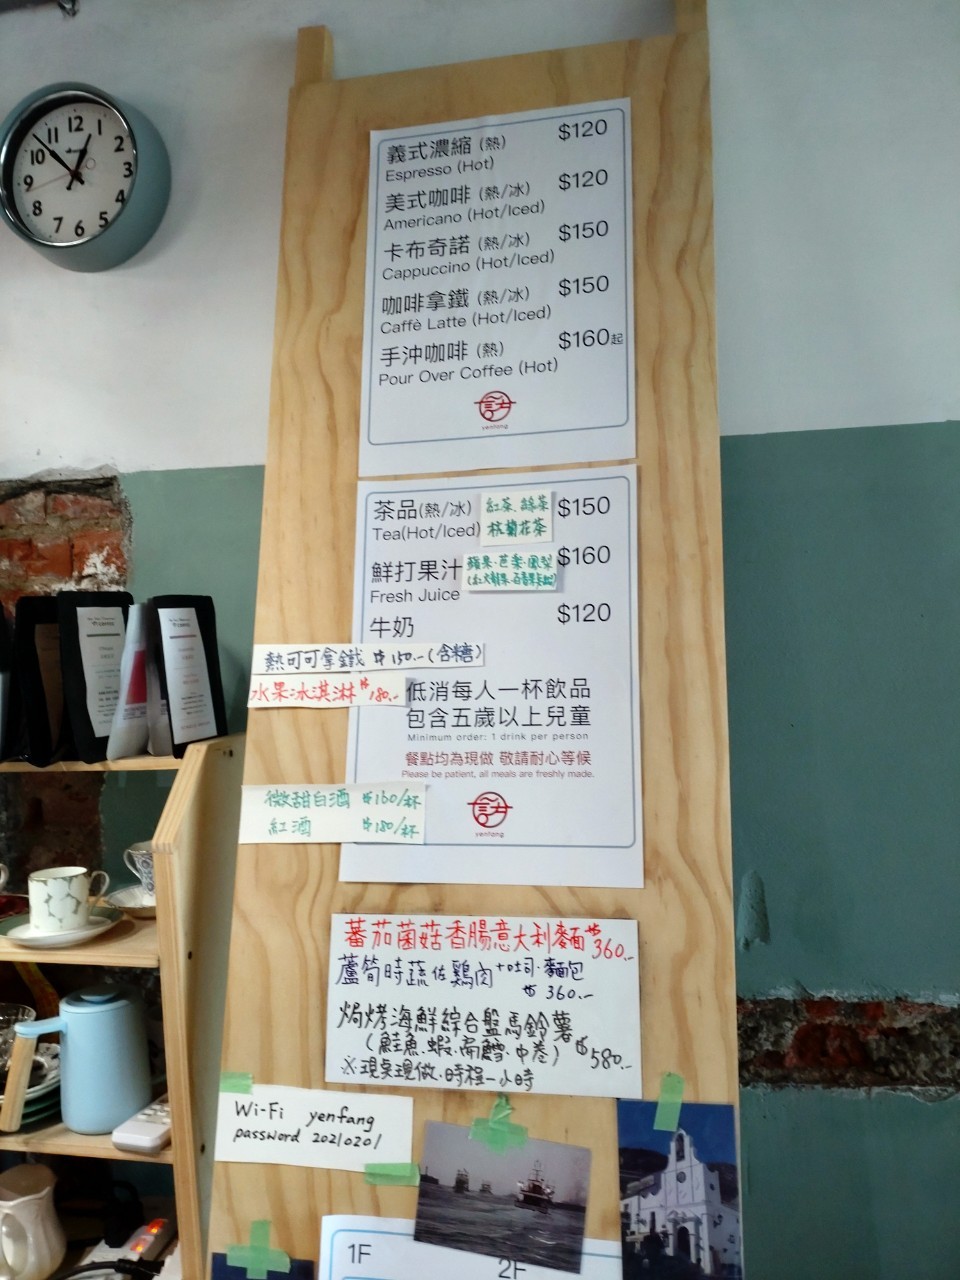 12
1
2
3
4
5
6
7
8
9
10
11
義式濃縮 (熱) $120
Espresso (Hot)
美式咖啡 (熱/冰) $120
Americano (Hot/Iced)
卡布奇諾 (熱/冰) $150
Cappuccino (Hot/Iced)
咖啡拿鐵 (熱/冰) $150
Caffè Latte (Hot/Iced)
手沖咖啡 (熱) $160起
Pour Over Coffee (Hot)
yenfang
茶品(熱/冰) 紅茶、綠茶 $150
Tea(Hot/Iced) 杭菊花茶
鮮打果汁 蘋果·芭樂·鳳梨 $160
Fresh Juice
牛奶 $120
熱可可拿鐵 $150.-(含糖)
水果冰淇淋 $180.-
低消每人一杯飲品
包含五歲以上兒童
Minimum order: 1 drink per person
餐點均為現做 敬請耐心等候
Please be patient, all meals are freshly made.
微甜白酒 $160/杯
紅酒 $180/杯
yenfang
蕃茄菌菇香腸意大利麵 $360.-
蘆筍時蔬佐雞肉+吐司·麵包
$360.-
焗烤海鮮綜合盤馬鈴薯
(鮭魚·蝦·扁鱈·中卷) $580.-
※現桌現做·時程一小時
Wi-Fi yenfang
password 20210201
1F 2F